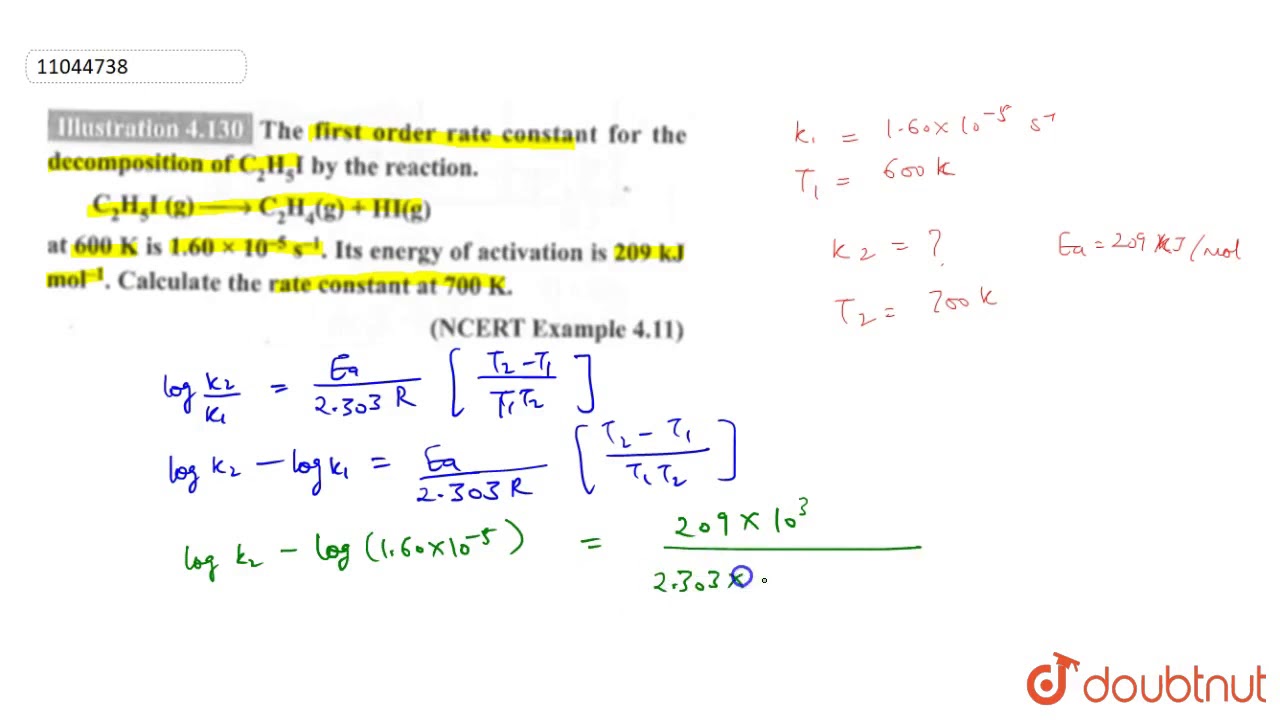 11044738
Illustration 4.130 The first order rate constant for the
decomposition of C₂H₅I by the reaction.
C₂H₅I (g) ⟶ C₂H₄(g) + HI(g)
at 600 K is 1.60 × 10⁻⁵ s⁻¹. Its energy of activation is 209 kJ
mol⁻¹. Calculate the rate constant at 700 K.
(NCERT Example 4.11)
k₁ = 1.60 × 10⁻⁵ s⁻¹
T₁ = 600 K
k₂ = ?
Ea = 209 kJ/mol
T₂ = 700 K
log k₂/k₁ = Ea/2.303 R [T₂ - T₁/T₁T₂]
log k₂ - log k₁ = Ea/2.303 R [T₂ - T₁/T₁T₂]
log k₂ - log (1.60 × 10⁻⁵) = 209 × 10³
2.303 ×
doubtnut